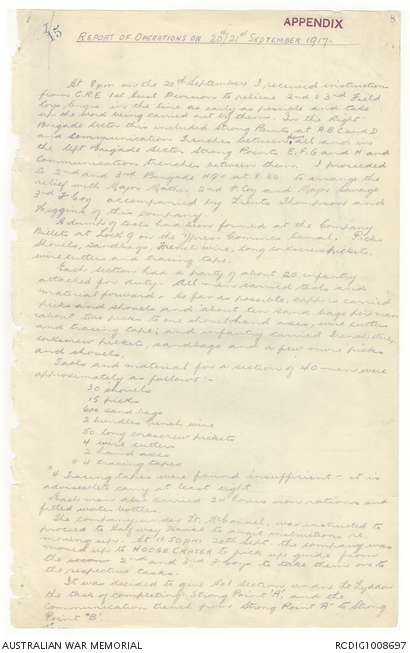 APPENDIX
1/15
8
REPORT OF OPERATIONS ON 20th/21st SEPTEMBER 1917.
At 8 pm on the 20th September I received instructions
from C.R.E. 1st Aust Division to relieve 2nd & 3rd Field
Coys Engrs in the line as early as possible and take
up the work being carried out by them. In the Right
Brigade Sector this included Strong Points at A B C and D
and Communication Trenches between them, and in
the left Brigade Sector Strong Points E, F, G and H and
communication trenches between them. I proceeded
to 2nd and 3rd Brigade HQrs at 8.50 to arrange the
relief with Major Mather 2nd F Coy and Major Savage
3rd F Coy accompanied by Lieuts Thompson and
Higgins of this company.
A dump of tools had been formed at the Company
Billets at Lock 9 on the Ypres-Comines Canal. Picks
Shovels, sandbags, French wire, long corkscrew pickets,
wire cutters and tracing tape.
Each section had a party of about 20 infantry
attached for duty. All men carried tools and
material forward. As far as possible, sappers carried
picks and shovels and about ten sand bags per man
about two men to one hand axes, wire cutters
and tracing tape; and infantry carried French wire,
corkscrew pickets, sandbags and a few more picks
and shovels.
Tools and material for a section of 40 men were
approximately as follows:-
30 shovels
15 picks
600 sand bags
2 bundles French wire
50 long corkscrew pickets
4 wire cutters
2 hand axes
* 4 tracing tapes
* 4 Tracing tapes were found insufficient - it is
advisable to carry at least eight.
Each man also carried 24 hours iron rations and
filled water bottles.
The company, under Lt. McCannel, was instructed to
proceed to Half way House to get instructions re
moving up. At 11.50 PM 20th Sept the company was
moved up to HOOGE CRATER to pick up guides from
the 2nd and 3rd F Coys to take them on to
the respective tasks.
It was decided to give No 1 Section under Lt Lyddon
the task of completing Strong Point 'A' and the
communication trench from Strong Point 'A' to Strong
Point 'B'.
AUSTRALIAN WAR MEMORIAL
RCDIG1008697